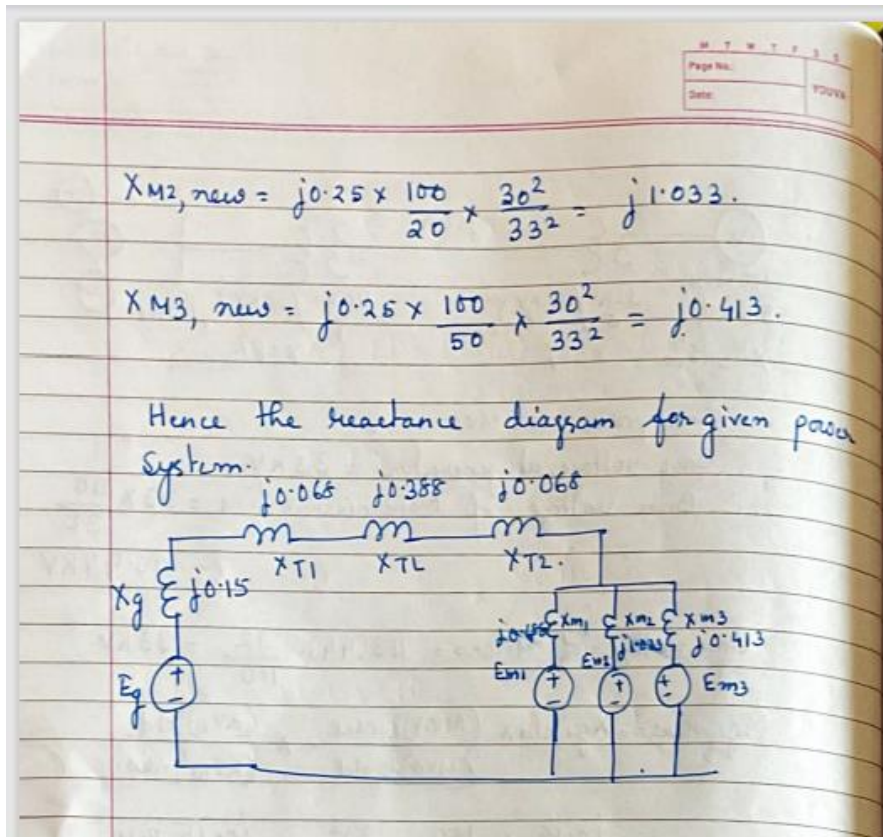 M T W T F S S
Page No.:
Date:
YOUVA
X M2, new = j0.25 x 100/20 x 30²/33² = j1.033.
X M3, new = j0.25 x 100/50 x 30²/33² = j0.413.
Hence the reactance diagram for given power
System.
j0.068 j0.388 j0.068
XT1 XTL XT2.
Xg j0.15
Xm1 Xm2 Xm3
j0.413
Eg + -
Em1 + - Em2 + - + - Em3